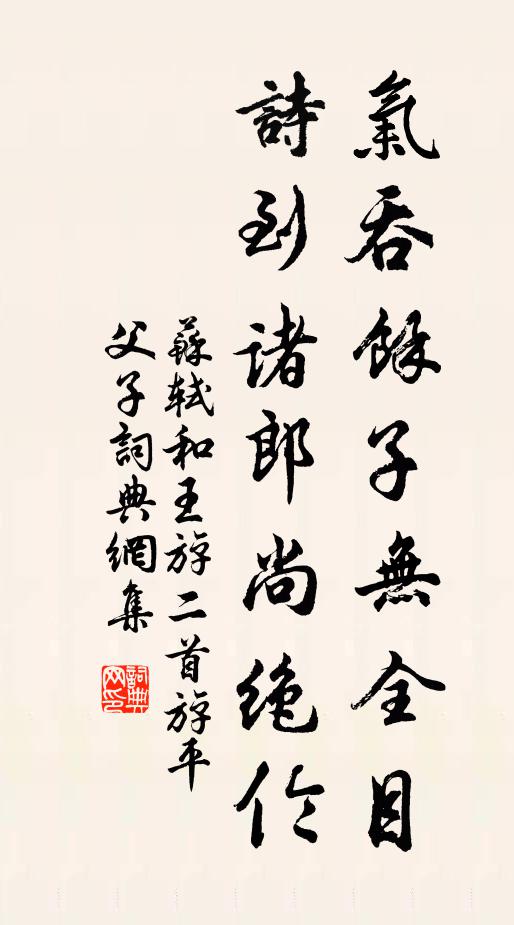 氣吞餘子無全目
詩到諸郎尚絶倫
蘇軾和王斿二首斿平
父子詞典網集
詞典網印